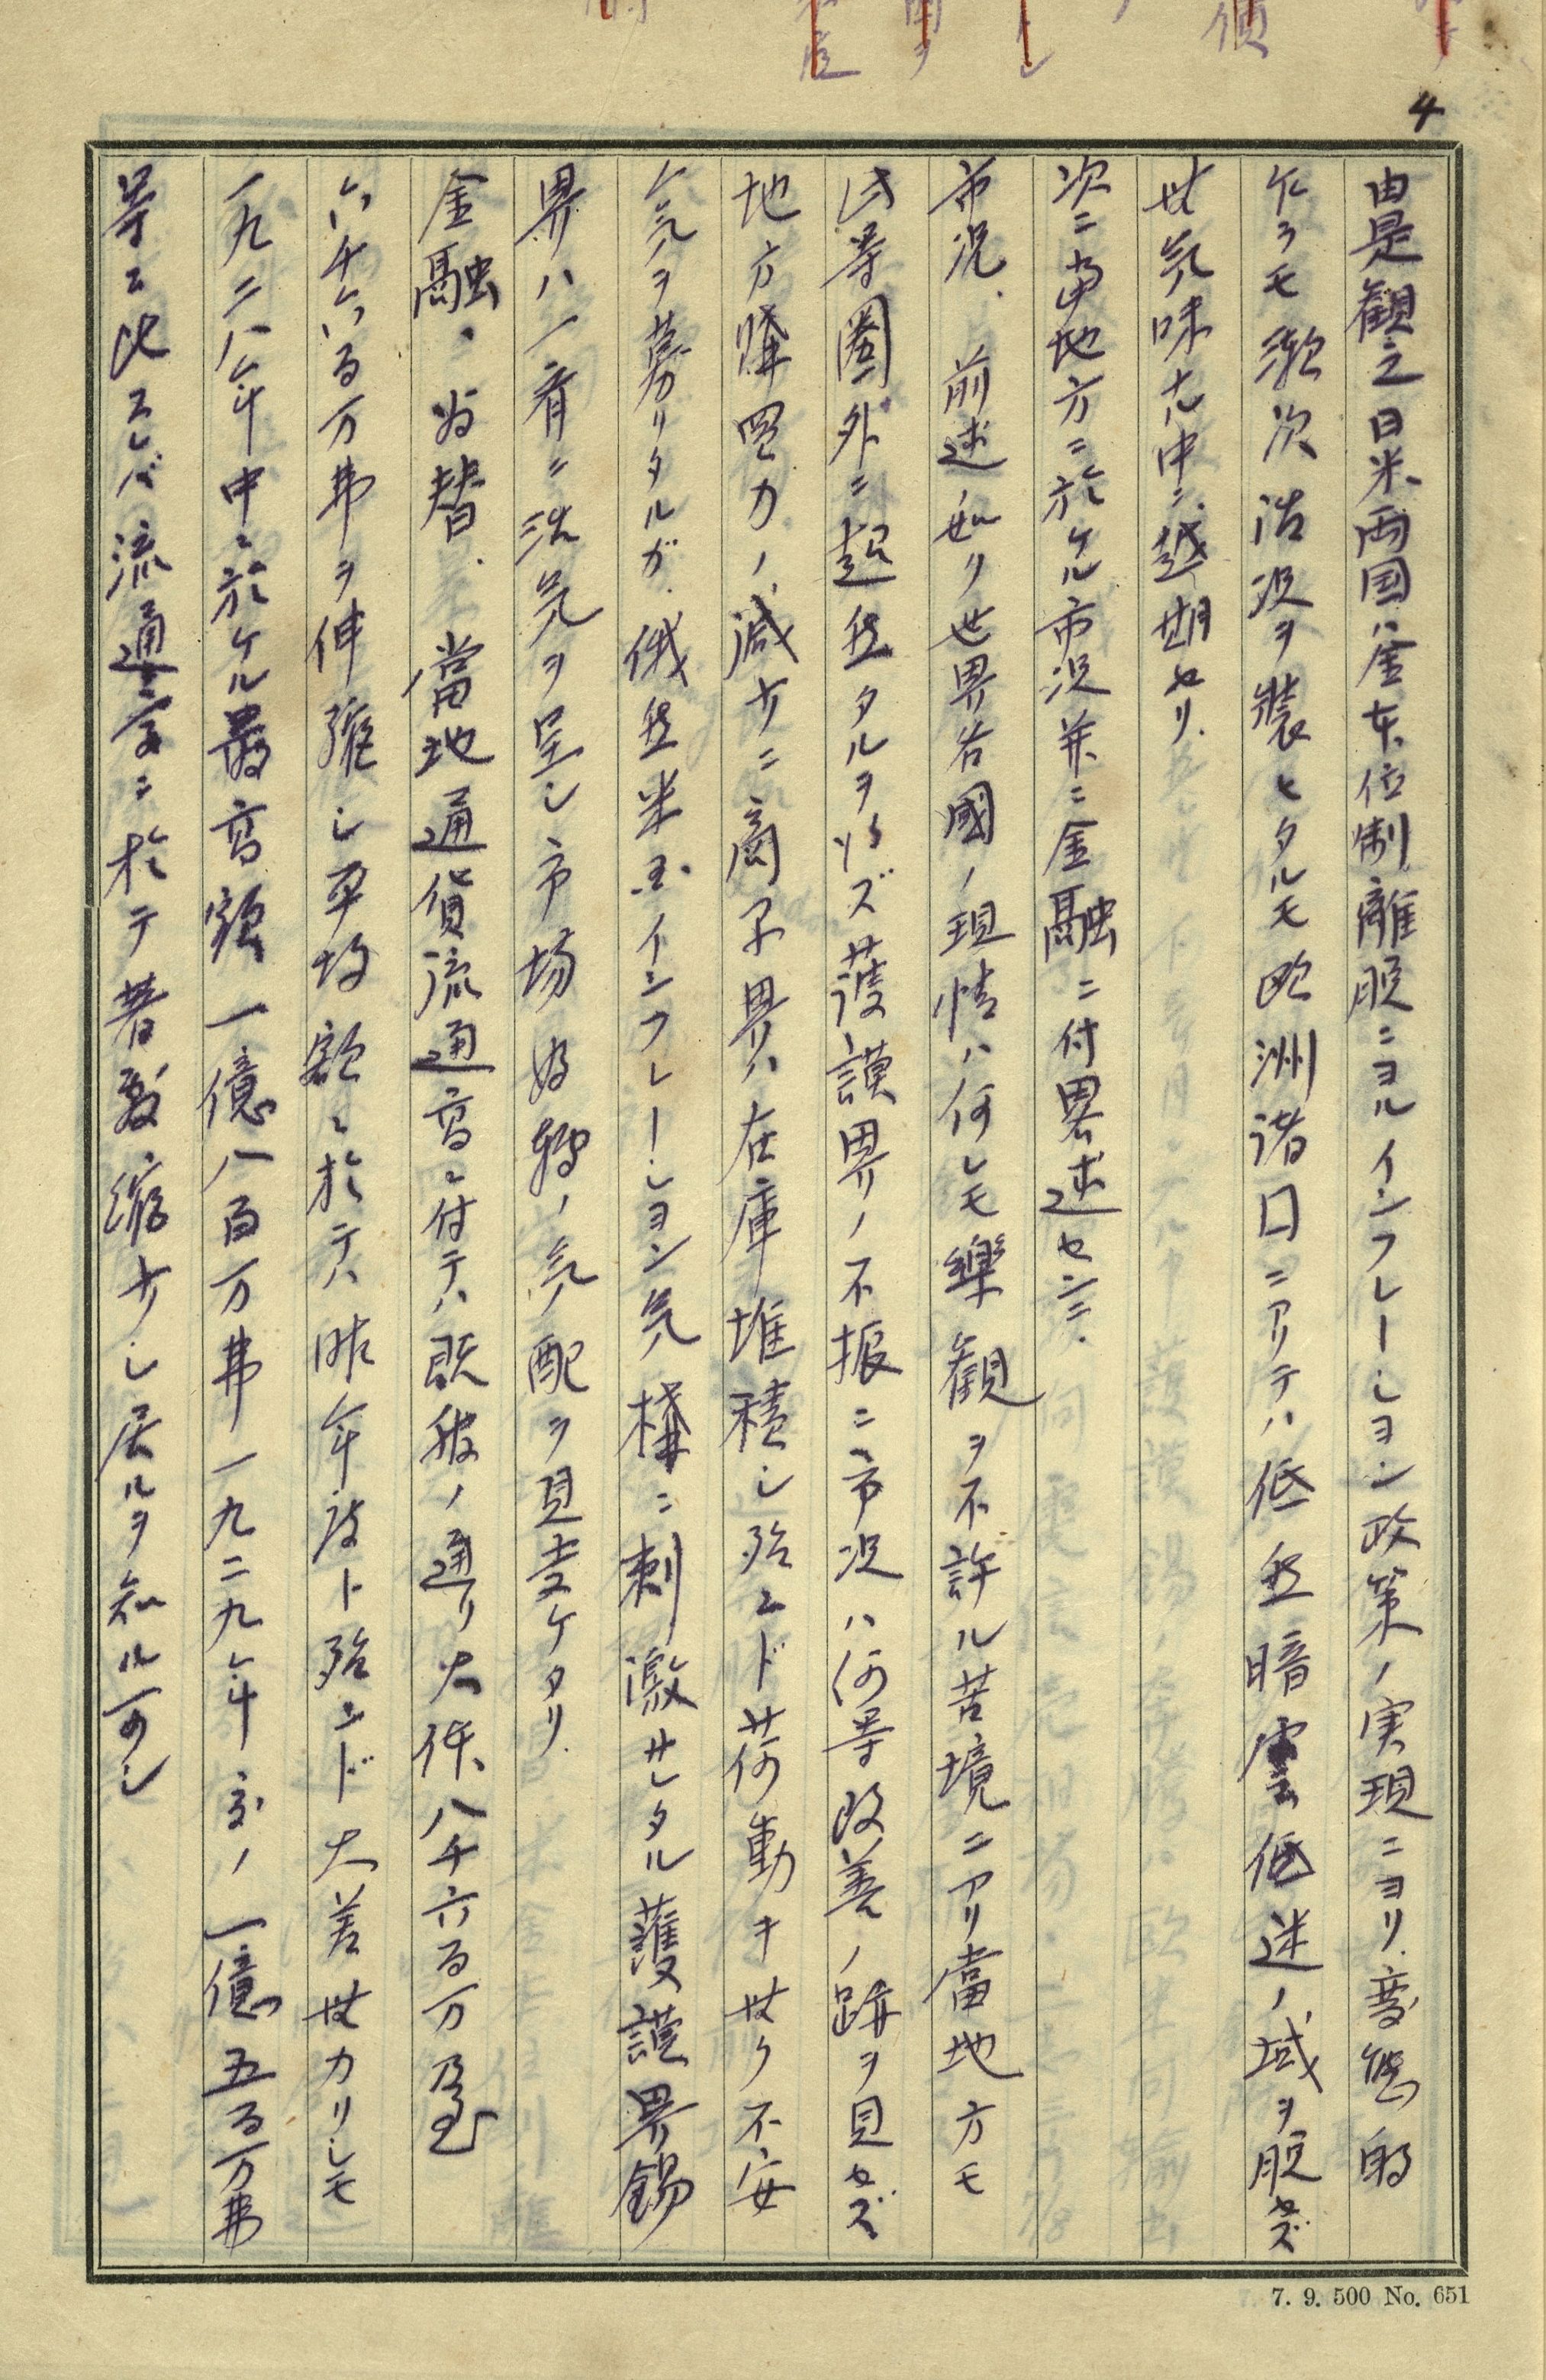 4
由是観之日米両国ハ金本位制離脱ニヨルインフレーション政策ノ実現ニヨリ変態的
乍ラモ漸次活況ヲ装ヒタルモ欧洲諸国ニアリテハ低迷暗雲低迷ノ域ヲ脱セズ
無気味ナル中ニ越期セリ.
次ニ当地方ニ於ケル市況並ニ金融ニ付畧述センニ.
市況. 前述如リ世界各國ノ現情ハ何レモ樂観ヲ不許ル苦境ニアリ當地方モ
此等圏外ニ超然タルヲ得ズ護謨界ノ不振ニ市況ハ何等改善ノ跡ヲ見セズ
地方購買力ノ減少ニ商事界ハ在庫堆積シ殆ムド荷動キ無ク不安
気ヲ募リタルガ.俄然米国インフレーション気構ニ刺激サレタル護謨界錫
界ハ一斉ニ活気ヲ呈シ市場好轉ノ気配ヲ見受ケタリ.
金融.為替. 當地通貨流通高ニ付テハ既報ノ通リ大体八千六百万乃至
六千六百万弗ヲ伸縮シ平均額ニ於テハ昨年度ト殆ンド大差無カリシモ
一九二八年中ニ於ケル最高額一億八百万弗一九二九年度ノ一億五百万弗
等ニ比スレバ流通高ニ於テ著敷縮少シ居ルヲ知ル可シ
7. 9. 500 No. 651